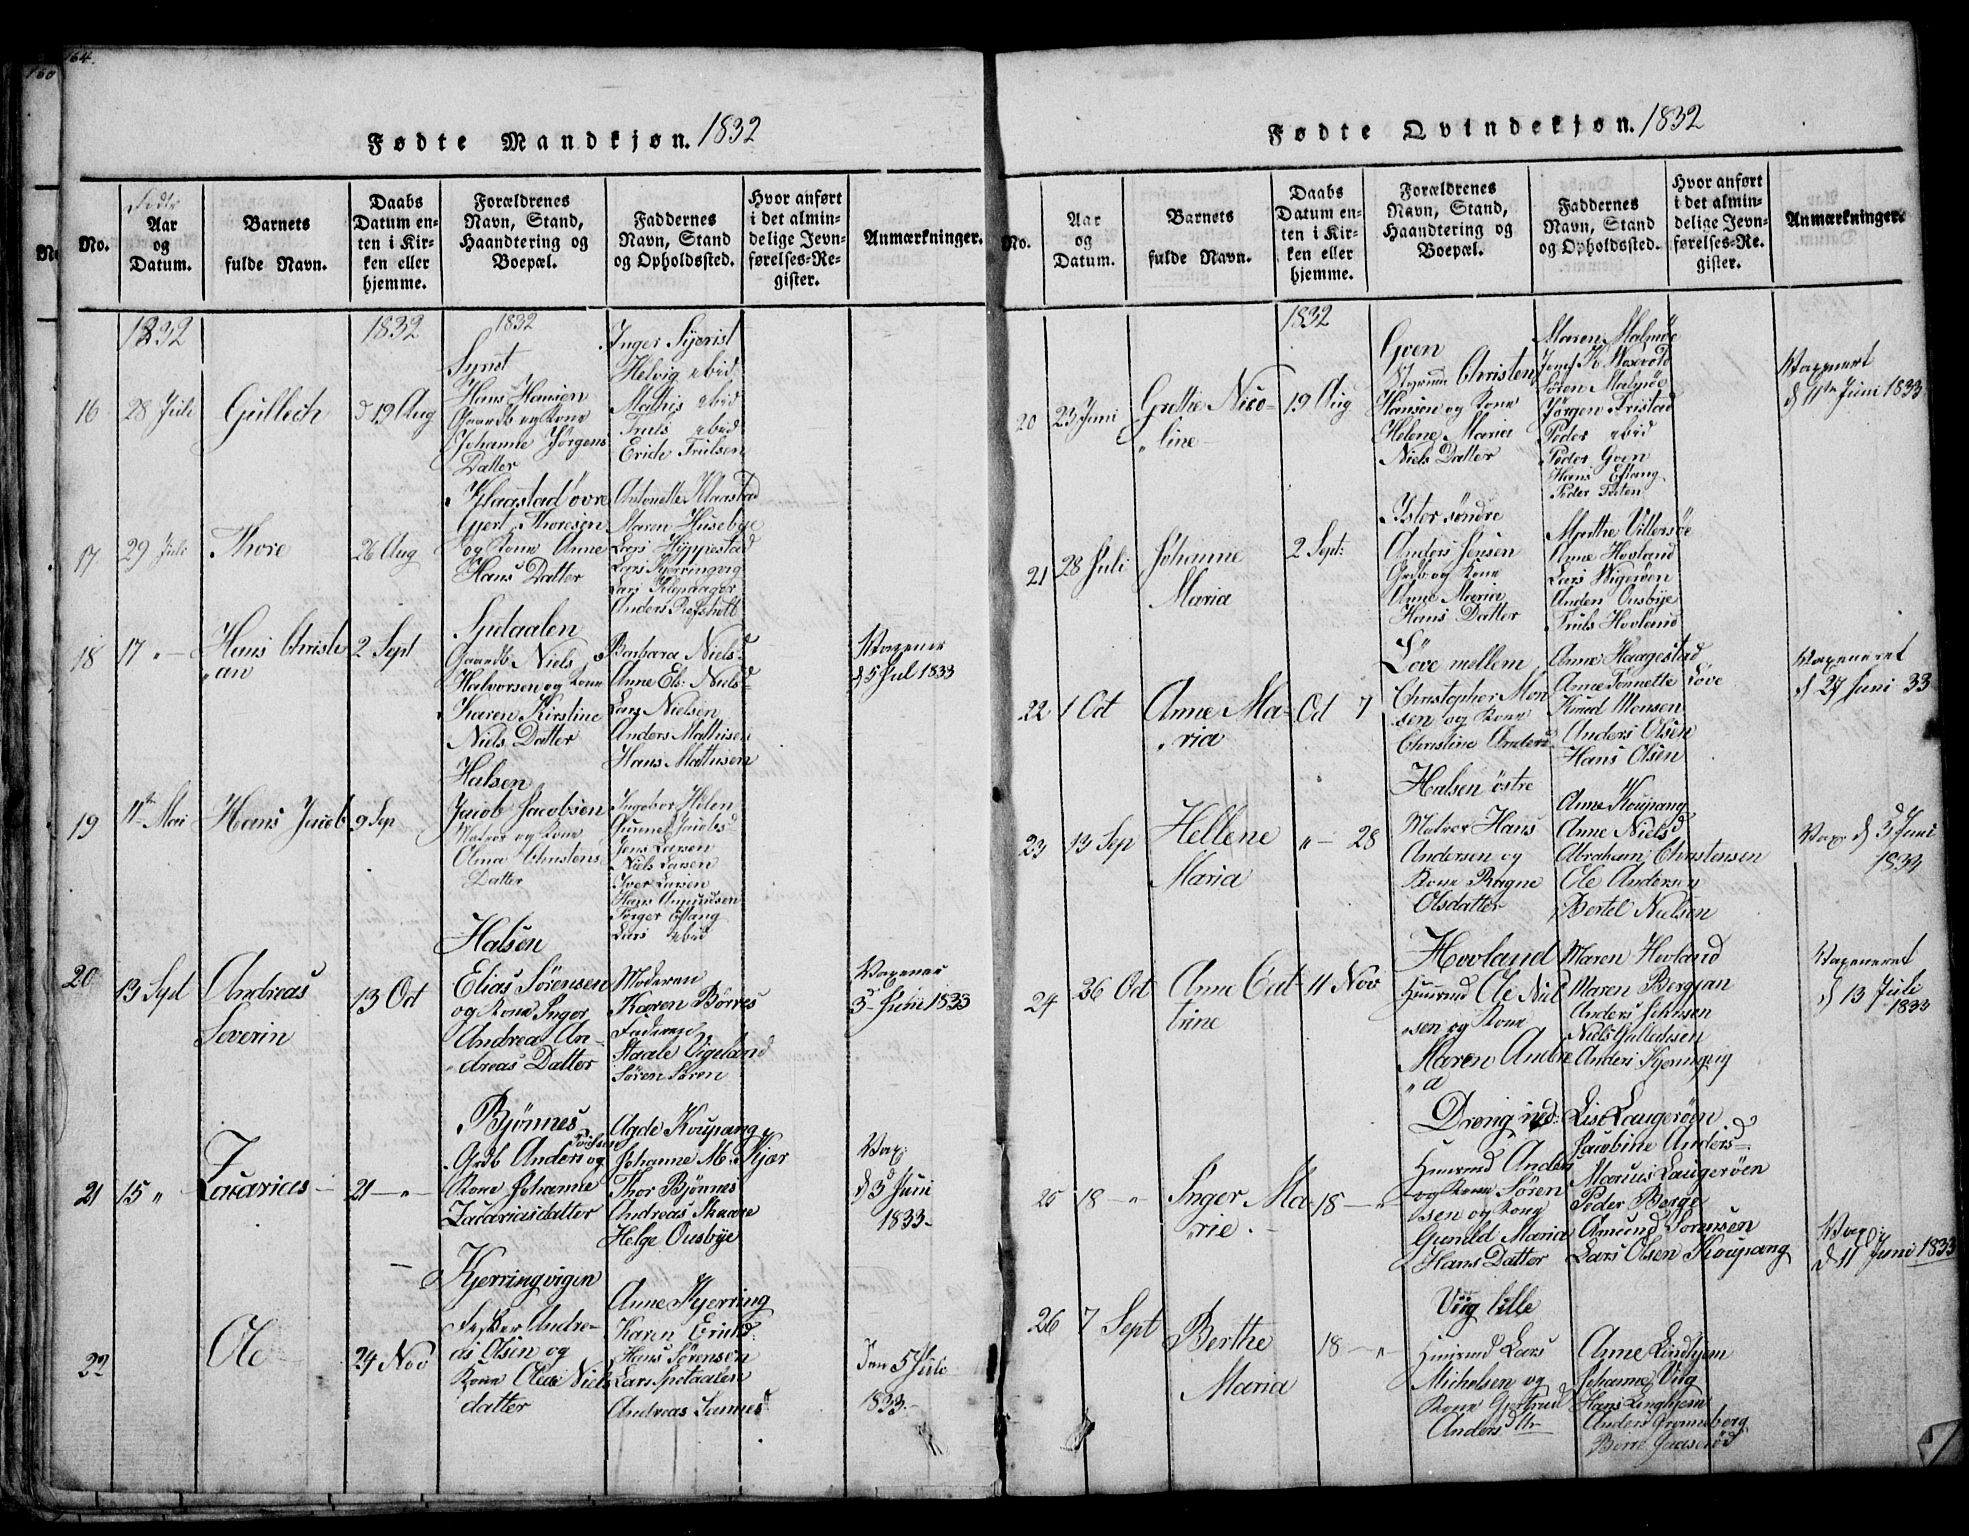 164.
160
Fødte Mandkjøn. 1832
Fødte
No.
Aar
og
Datum.
Barnets
fulde Navn.
Daabs
Datum en-
ten i Kir-
ken eller
hjemme.
Forældrenes
Navn, Stand,
Haandtering og
Boepæl.
Faddernes
Navn, Stand
og Opholdssted.
Hvor anført
i det almin-
delige Jevn-
førelses-Re-
gister.
Anmærkninger.
1832
1832
1832
16
28 Juli
Gullech
d 19 Aug
Synst
Hans Hansen
Gaardb og Kone
Johanne Jørgens
Datter
Helvig ebid
Mathis ebid
Truls ebid
Erich Trulsen
17
29 Juli
Thore
26 Aug
Klaastad øvre
Gjert Thoresen
og Kone Anne
Hans Datter
Antonette Klaastad
Maren Husebye
Lars Hyppestad
Lars Kjerringvig
Lars Klepaager
18
17 "
Hans Christi
"an
2 Sept
Spetaalen
Gaardb Niels
Halvorsen og Kone
Karen Kirstine
Niels Datter
Barbara Nielsd
Anne Els: Nielsd
Lars Nielsen
Anders Mathisen
Hans Mathisen
d 5 Jul 1833
19
11te Mai
Hans Jacob
9 Sep
Halsen
Jacob Jacobsen
Matros og Kone
Christens
Datter
Ingebor Helen
Gunnel Jacobsd
Jens Larsen
Niels Larsen
Iver Larsen
Hans Amundsen
Torger Eftang
Lars ebid
20
13 Sept
Andreas
Severin
13 Oct
Halsen
Elias Sørensen
og Kone Inger
Andrea An-
"dreas Datter
Moderen
Karen Børres
Faderen
Staale Vigeland
Søren Søren
3 Juni 1833
21
15 "
Zacarias
21 — "
Bjønnes
Grdb Anders
og
Kone Johanne
Zacariasdatter
Agde Koupang
Johanne M. Kjær
Thor Bjønnes
Andreas Skaare
Helge Ousbye
Vax:
d 3 Juni
1833
22
Ole
24 Nov
Kjerringvigen
Andre-
as Olsen og
Kone Olea Niels
datter
Anne Kjerring
Karen
Hans Sørensen
Lars Spetaalen
Andreas
Den 5 Juli
1833
Fødte Qvindekjøn. 1832
No.
Aar
og
Datum.
Barnets
fulde Navn.
Daabs
Datum en-
ten i Kir-
ken eller
hjemme.
Forældrenes
Navn, Stand,
Haandtering og
Boepæl.
Faddernes
Navn, Stand
og Opholdssted.
Hvor anført
i det almin-
delige Jevn-
førelses-Re-
gister.
Anmærkninger.
1832
20
23 Juni
Grethe Nico-
"line
19 Aug
Gven
Christen
Hansen og Kone
Helene Maria
Niels Datter
Maren Malmøe
Søren Malmøe
Jørgen Fristad
Peder ebid
Peder Gven
Hans Eftang
Peder
d 11te Juni 1833
21
28 Juli
Johanne
Maria
2 Sept:
Ister søndre
Anders Jensen
Grdb og Kone
Anne Maria
Hans Datter
Marthe Villersøe
Anne Hovland
Lars Wigersen
Anders Ousbye
Truls Hovland
22
1 Oct
Anne Ma-
"ria
Oct 7
Løve mellem
Christopher Mon
sen og Kone
Christine Anders
Anne Haagestad
Anne Tonnette Løve
Knud Monsen
Anders Olsen
Hans Olsen
Vaxeneret
d 27 Juni 33
23
13 Sep
Hellene
Maria
" — 28
Halsen østre
Matros Hans
Andersen og
Kone Ragne
Olsdatter
Anne Koupang
Anne Nielsd
Abraham Christensen
Ole Andersen
Bertel Nielsen
Vax: d 5 Juni
24
26 Oct
Anne Cat-
"trine
11 Nov
Hovland
Huusmd Ole Niel
"sen og Kone
Maren Andre
"a
Maren Hovland
Maren Bergan
Anders Johnsen
Niels Gullechsen
Anders Kjerringvig
Vaxeneret
d 13 Juli
1833
25
18 — "
Inger Ma-
"rie
18 — "
Huusmd Anders
og Kone Søren
sen og Kone
Gunild Maria
Hans Datter
Lise Laugerøen
Jacobine Andersd
Marius Laugerøen
Peder Berge
Amund Sorensen
Lars Olsen Koupang
d 11 Juni 1833
26
7 Sept
Berthe
Maria
18 — "
Viig lille
Huusmd Lars
Michelsen og
Kone Gjertrud
Anders dtr
Anne Lindhjem
Johanne Viig
Hans Linghjem
Anders Grønneberg